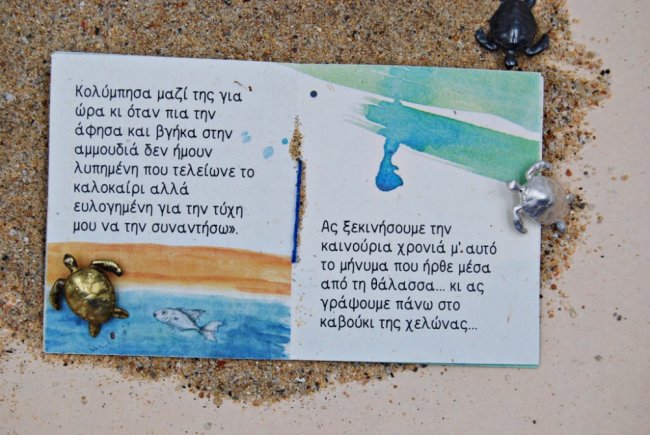 Κολύμπησα μαζί της για
ώρα κι όταν πια την
άφησα και βγήκα στην
αμμουδιά δεν ήμουν
λυπημένη που τελείωνε το
καλοκαίρι αλλά
ευλογημένη για την τύχη
μου να την συναντήσω».
Ας ξεκινήσουμε την
καινούρια χρονιά μ'.αυτό
το μήνυμα που ήρθε μέσα
από τη θάλασσα... κι ας
γράψουμε πάνω στο
καβούκι της χελώνας...